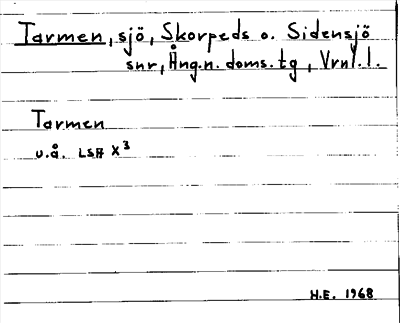 Tarmen, sjö, Skorpeds o. Sidensjö
snr, Ång.n. doms.tg, Vrnl.l.
Tarmen
u.å. LSA X³
H.E. 1968